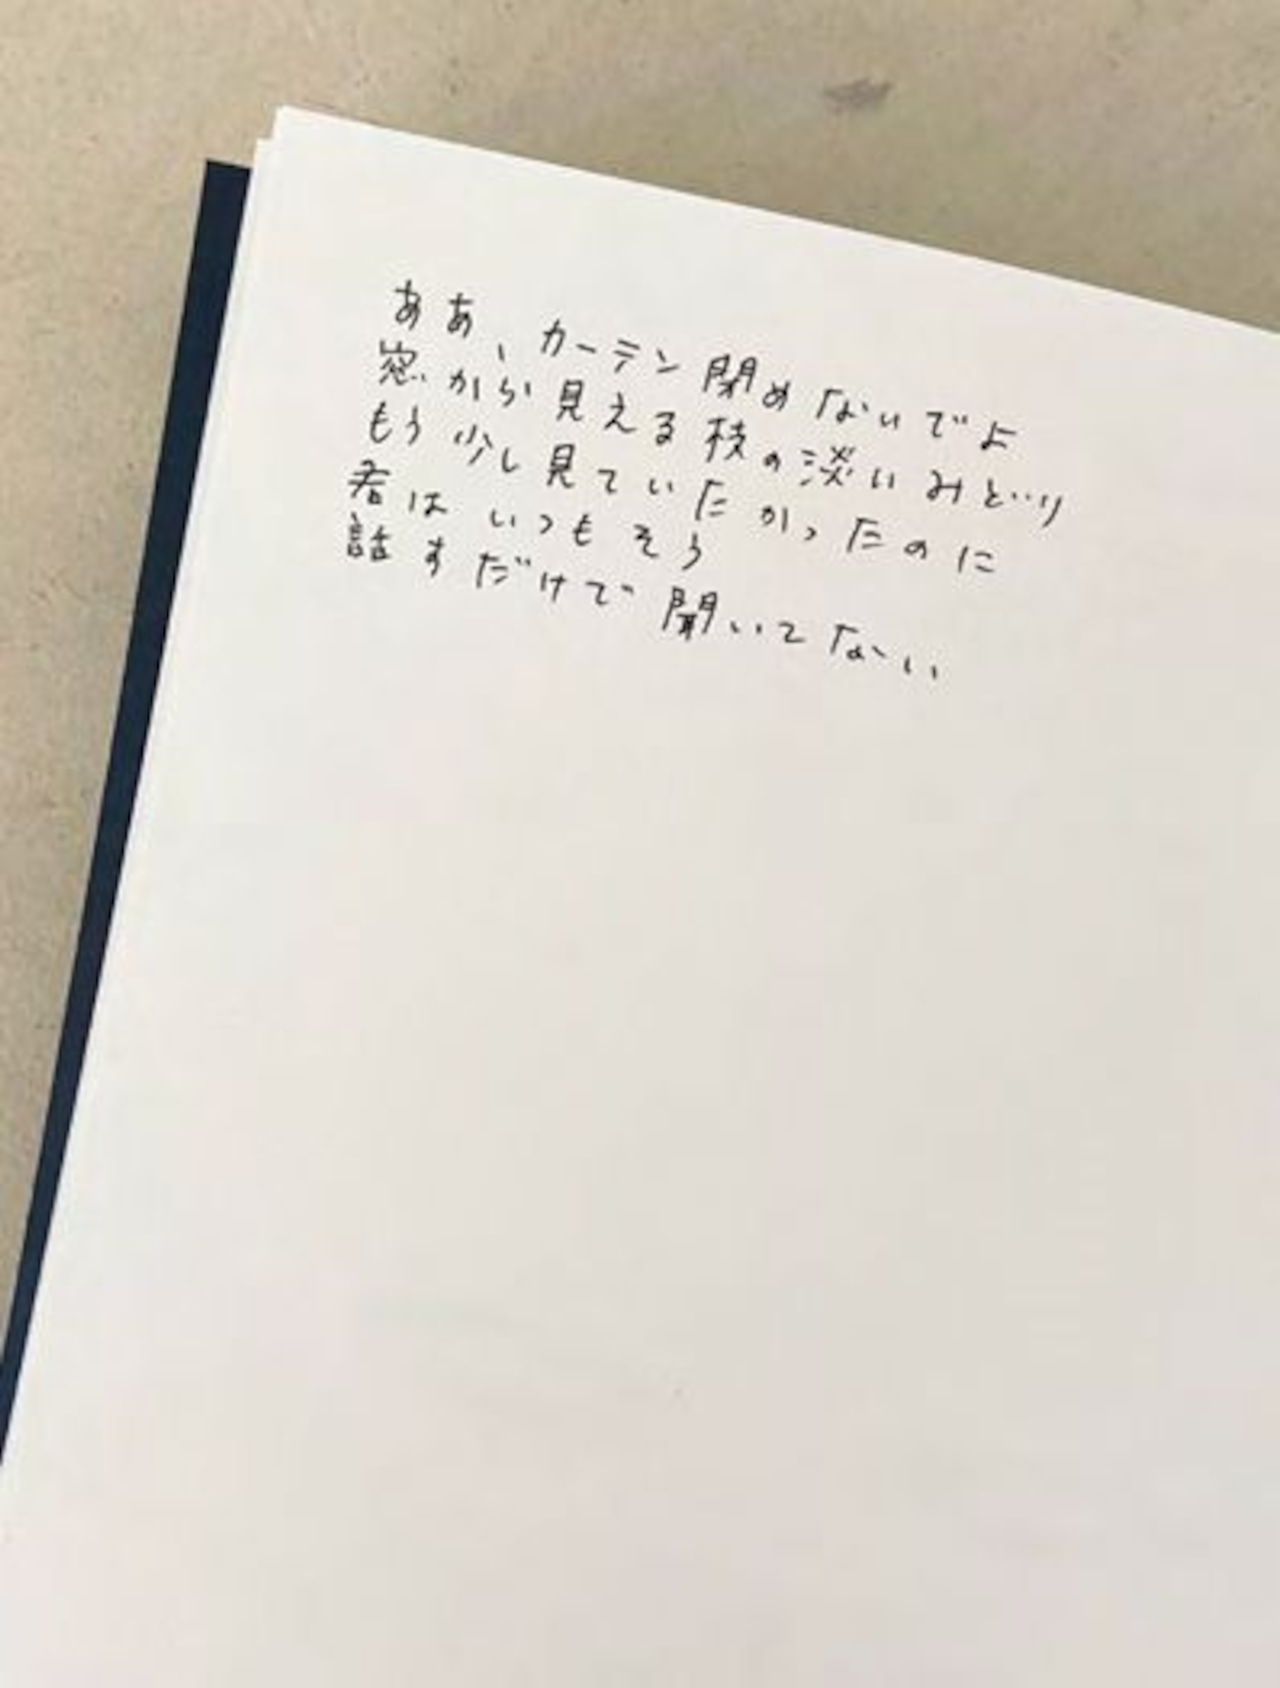 ああ、カーテン閉めないでよ
窓から見える枝の淡いみどり
もう少し見ていたかったのに
君はいつもそう
話すだけで聞いてない